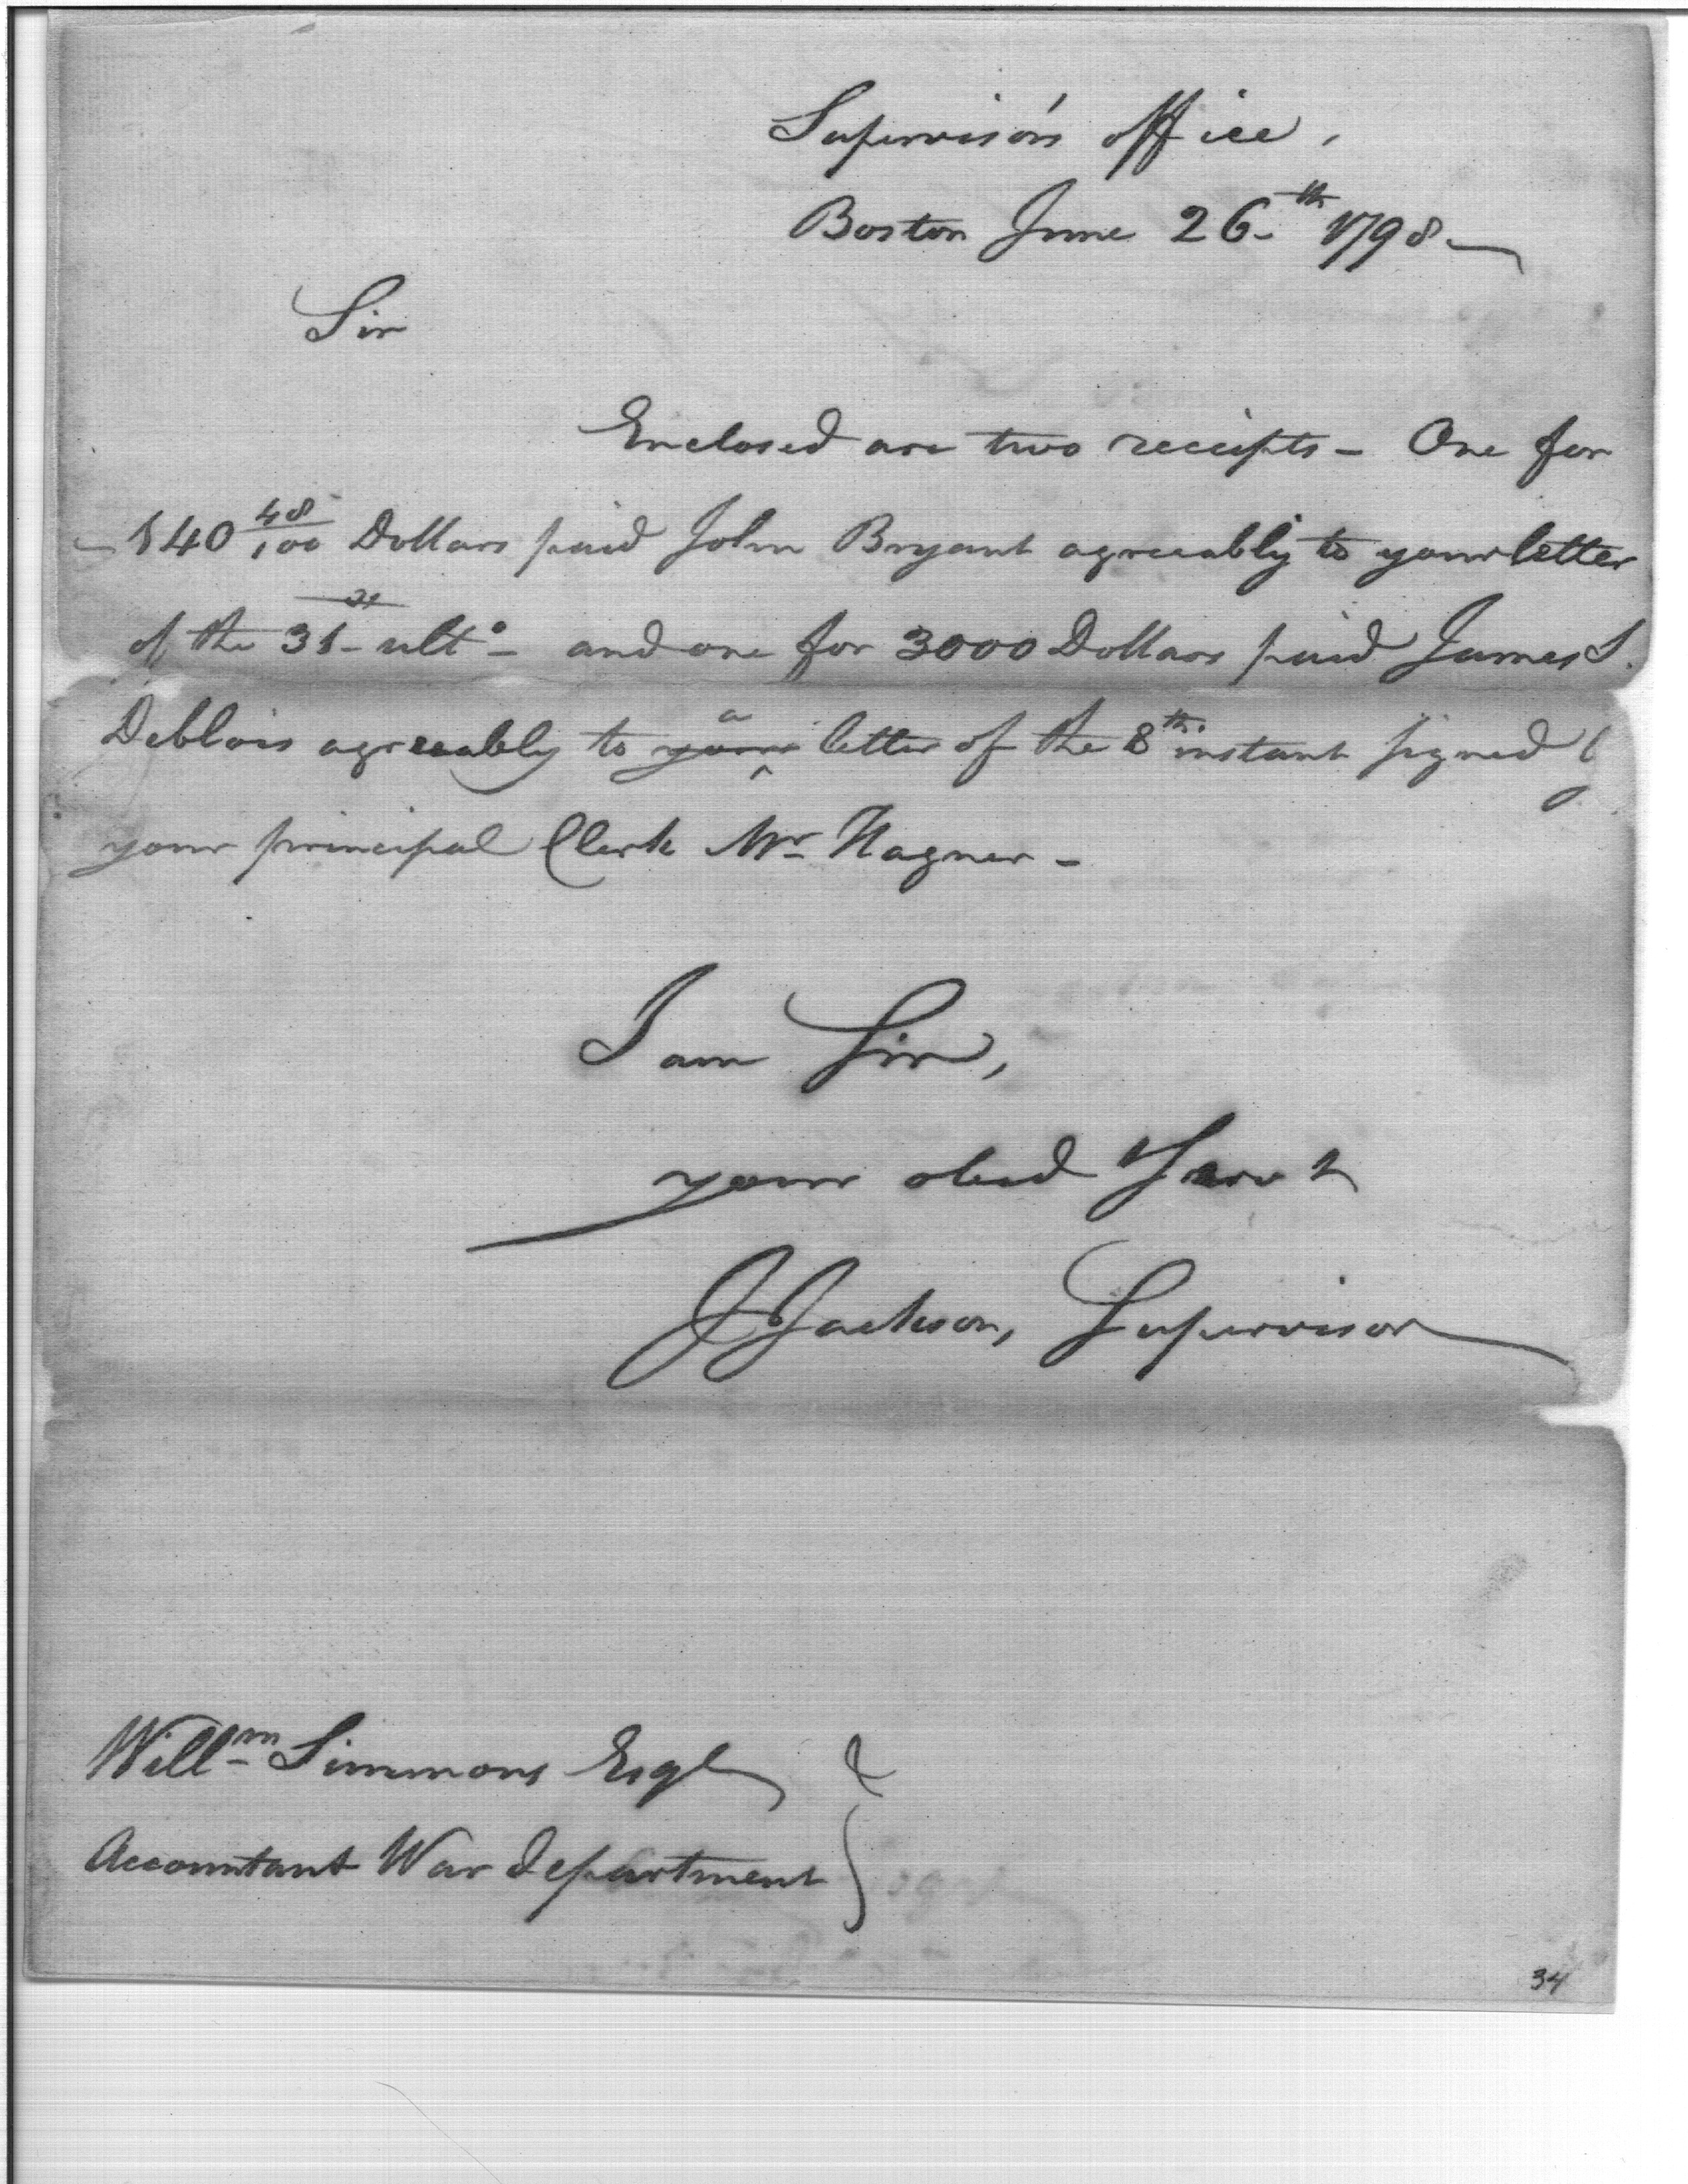 Supervisor's office,
Boston June 26th 1798
Sir
Enclosed are two receipts – One for
840 48/100 Dollars paid John Bryant agreeably to your letter
of the 31st ulto – and one for 3000 Dollars paid James S.
Deblois agreeably to your a letter of the 8th instant signed by
your principal Clerk Mr Hagner –
I am Sir,
your obed Servt
J Jackson, Supervisor
Willm Simmons Esqr
Accountant War department
34